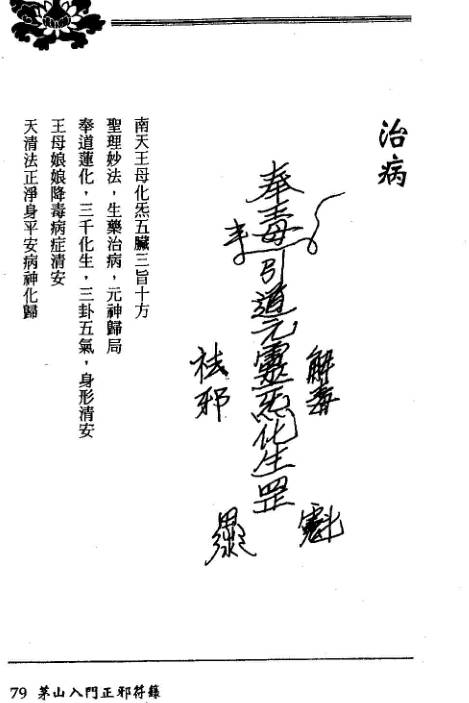 治病
奉毒引道元靈炁化生罡
解毒
祛邪
魁
南天王母化炁五臟三旨十方
聖理妙法，生藥治病，元神歸局
奉道蓮化，三千化生，三卦五氣，身形清安
王母娘娘降毒病症清安
天清法正淨身平安病神化歸
79 茅山入門正邪符籙